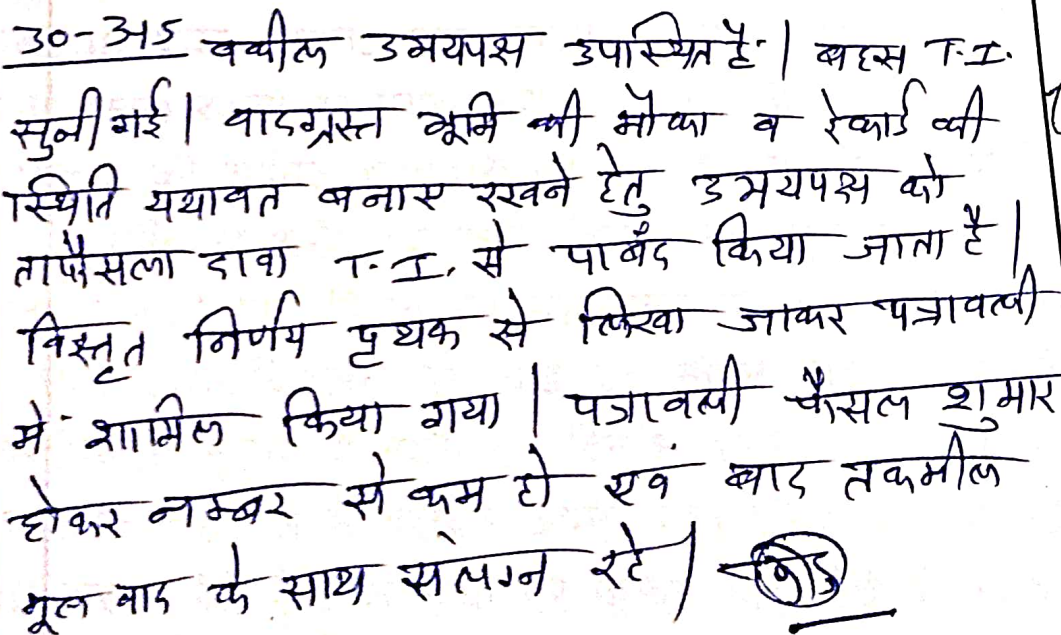 30-3-15 वकील उभयपक्ष उपस्थित है। बहस T.I.
सुनी गई। वादग्रस्त भूमि की मौका व रेकार्ड की
स्थिति यथावत बनाए रखने हेतु उभयपक्ष को
ताफैसला दावा T.I. से पाबंद किया जाता है।
विस्तृत निर्णय पृथक से लिखा जाकर पत्रावली
में शामिल किया गया। पत्रावली फैसल शुमार
होकर नम्बर से कम हो एवं बाद तकमील
मूल वाद के साथ संलग्न रहे।